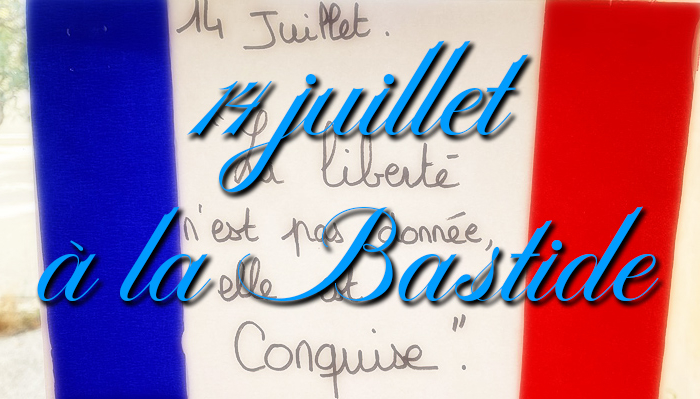 14 Juillet.
14 juillet
"La liberté
n'est pas donnée,
à la Bastide
elle est
Conquise".